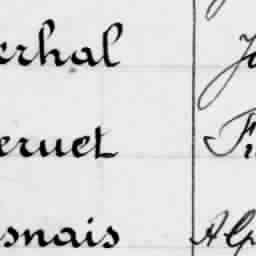 erhal J
eruet Fr
snais Alp